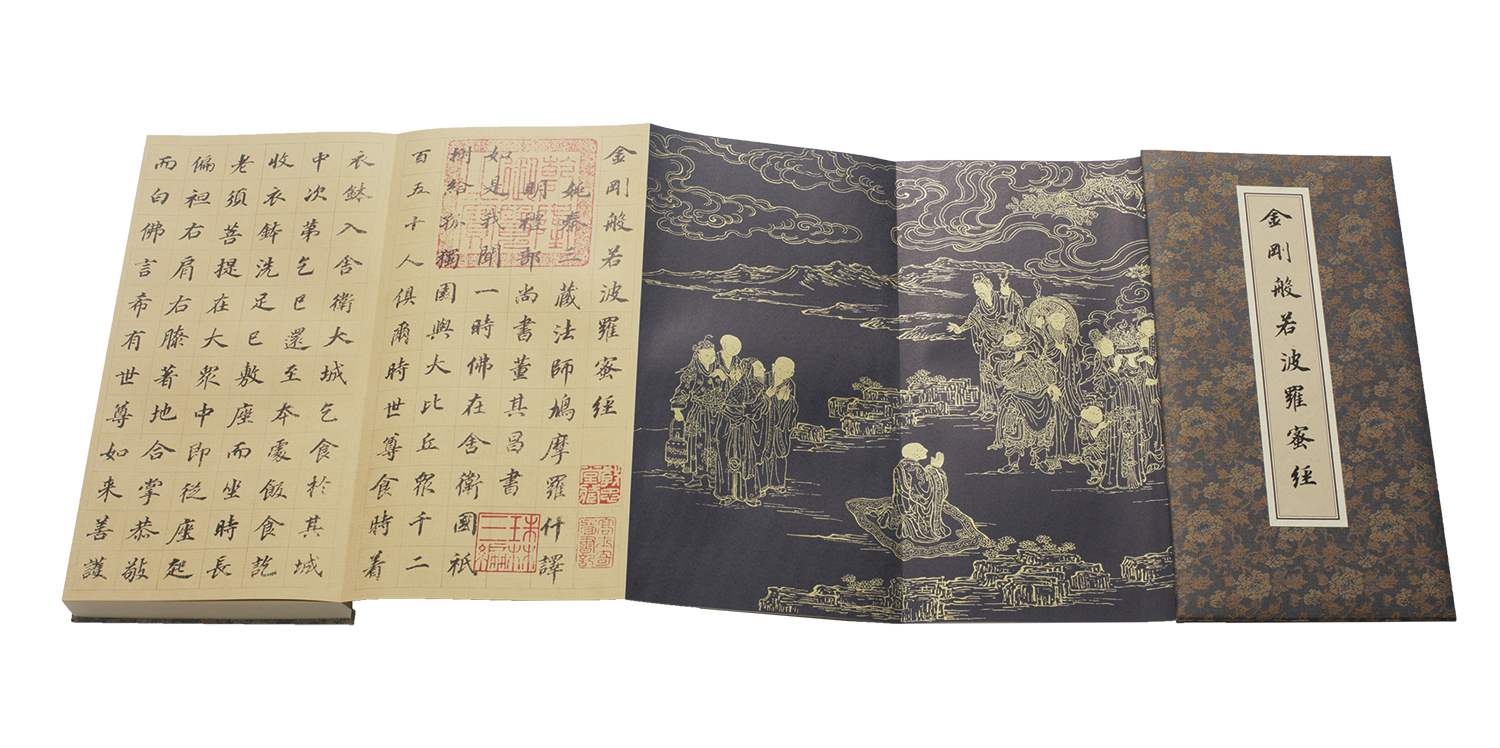 金剛般若波羅蜜經
金剛般若波羅蜜經
姚秦三藏法師鳩摩羅什譯
明禮部尚書董其昌書
如是我聞一時佛在舍衛國祇
樹給孤獨園與大比丘眾千二
百五十人俱爾時世尊食時着
衣鉢入舍衛大城乞食於其城
中次第乞已還至本處飯食訖
收衣鉢洗足已敷座而坐時長
老須菩提在大眾中即從座起
偏袒右肩右膝著地合掌恭敬
而白佛言希有世尊如来善護
珠林三編
高士奇圖書記